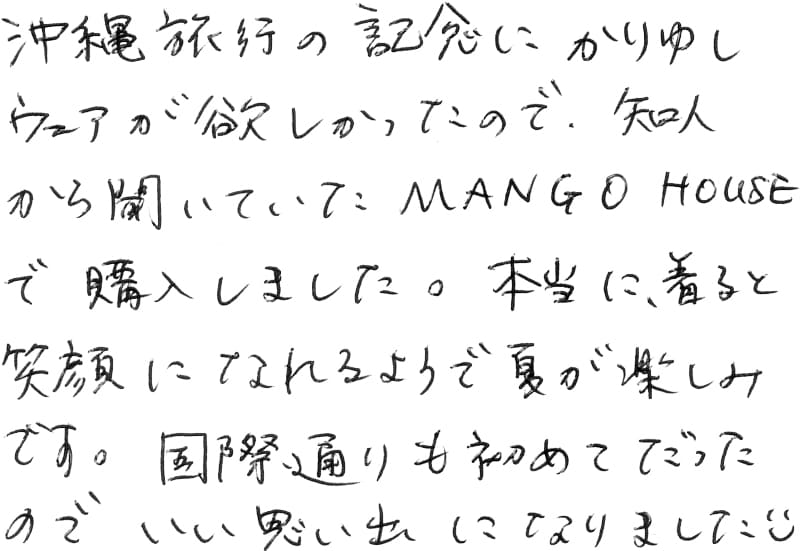 沖縄旅行の記念にかりゆし
ウェアが欲しかったので、知人
から聞いていた MANGO HOUSE
で購入しました。本当に、着ると
笑顔になれるようで夏が楽しみ
です。国際通りも初めてだった
のでいい思い出になりました☺